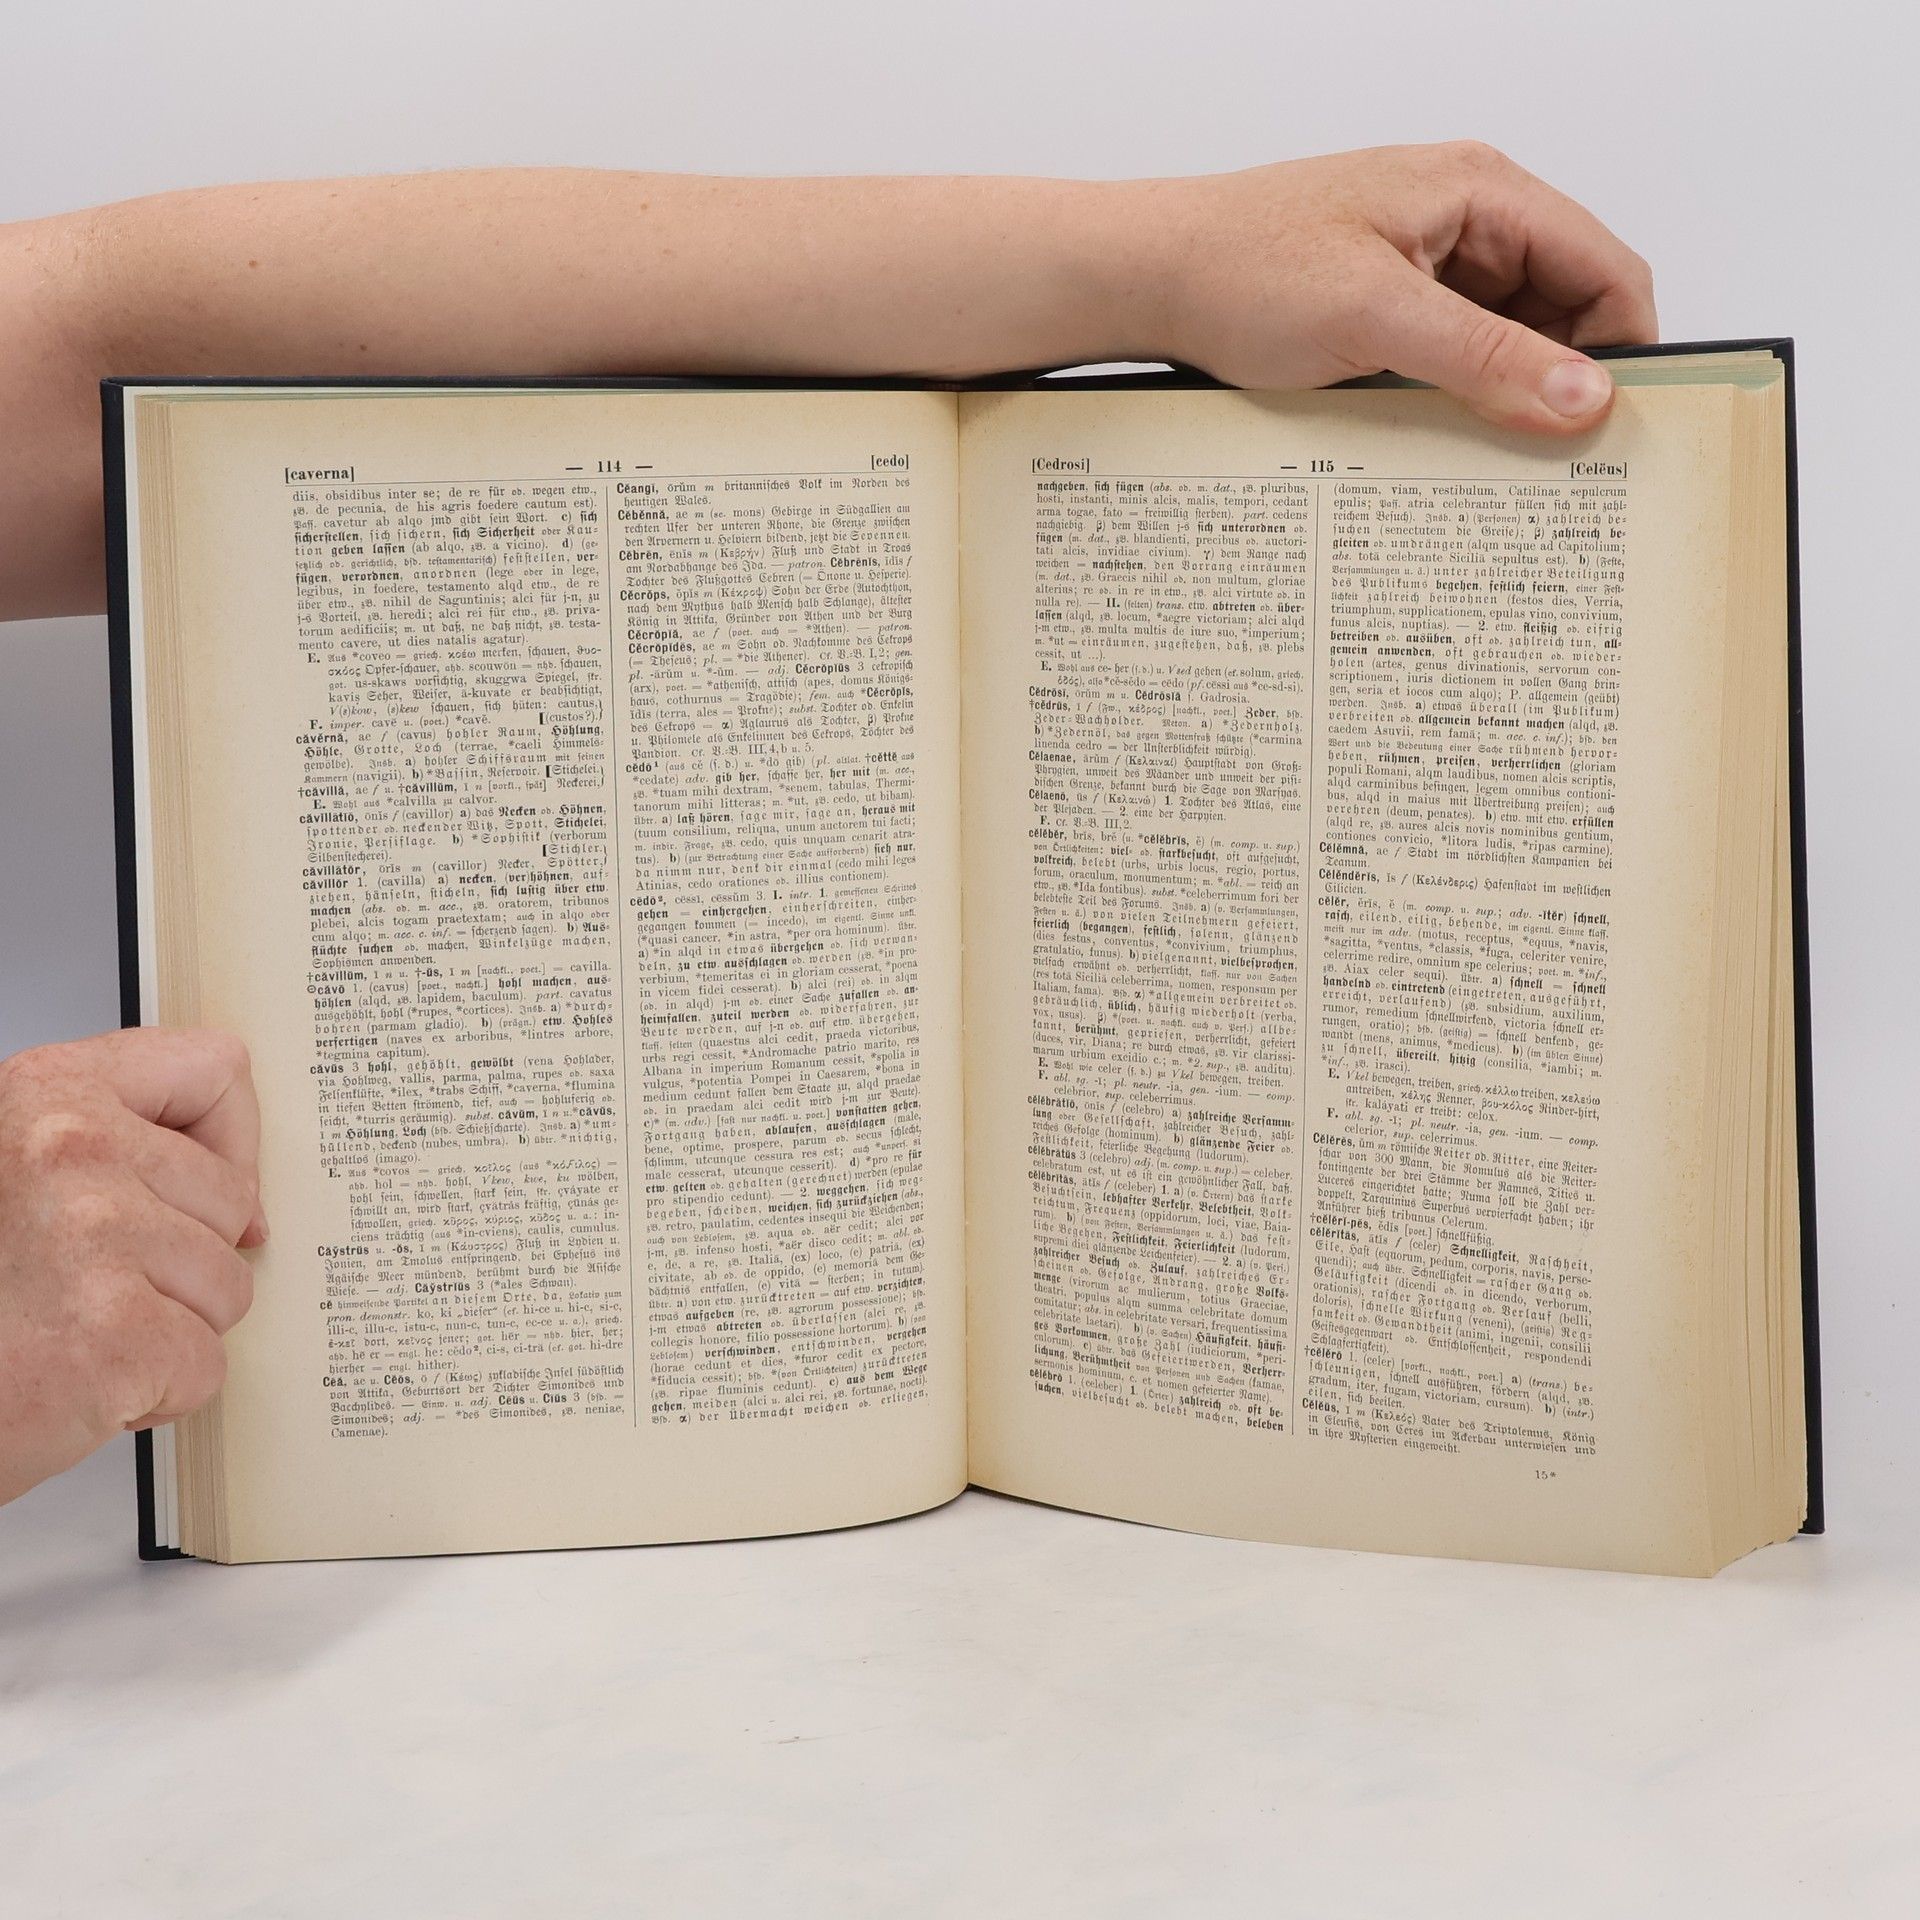 [caverna] — 114 — [cedo]
diis, obsidibus inter se; de re für ob. wegen etw.,
zB. de pecunia, de his agris foedere cautum est).
Pass. cavetur ab alqo jmd gibt sein Wort. c) sich
sicherstellen, sich sichern, sich Sicherheit oder Kau=
tion geben lassen (ab alqo, zB. a vicino). d) (ge=
setzlich ob. gerichtlich, bsd. testamentarisch) feststellen, ver=
fügen, verordnen, anordnen (lege oder in lege,
legibus, in foedere, testamento alqd etw., de re
über etw., zB. nihil de Saguntinis; alci für j-n, zu
j-s Vorteil, zB. heredi; alci rei für etw., zB. priva-
torum aedificiis; m. ut daß, ne daß nicht, zB. testa-
mento cavere, ut dies natalis agatur).
E. Aus *coveo = griech. κοέω merken, schauen, θυο-
σκόος Opfer=schauer, ahd. scouwōn = nhd. schauen,
got. us-skaws vorsichtig, skuggwa Spiegel, skr.
kavis Seher, Weiser, ā-kuvate er beabsichtigt,
V(s)kow, (s)kew schauen, sich hüten: cautus,
F. imper. cavē u. (poet.) *cavĕ. [(custos?).]
căvĕrnă, ae f (cavus) hohler Raum, Höhlung,
Höhle, Grotte, Loch (terrae, *caeli Himmels=
gewölbe). Insb. a) hohler Schiffsraum mit seinen
Kammern (navigii). b) *Bassin, Reservoir. [Stichelei.]
†căvillă, ae f u. †căvillŭm, ī n [vorkl., spät] Neckerei,
E. Wohl aus *calvilla zu calvor.
căvillātĭō, ōnis f (cavillor) a) das Necken ob. Höhnen,
spottender ob. neckender Witz, Spott, Stichelei,
Ironie, Persiflage. b) *Sophistik (verborum
Silbenstecherei). [Stichler.]
căvillātŏr, ōris m (cavillor) Necker, Spötter,
căvillŏr 1. (cavilla) a) necken, (ver)höhnen, auf=
ziehen, hänseln, sticheln, sich lustig über etw.
machen (abs. ob. m. acc., zB. oratorem, tribunos
plebei, alcis togam praetextam; auch in alqo oder
cum alqo; m. acc. c. inf. = scherzend sagen). b) Aus=
flüchte suchen ob. machen, Winkelzüge machen,
Sophismen anwenden.
†căvillŭm, ī n u. †-ŭs, ī m [nachkl., poet.] = cavilla.
căvō 1. (cavus) [poet., nachkl.] hohl machen, aus=
höhlen (alqd, zB. lapidem, baculum). part. cavatus
ausgehöhlt, hohl (*rupes, *cortices). Insb. a) *durch=
bohren (parmam gladio). b) (prägn.) etw. Hohles
verfertigen (naves ex arboribus, *lintres arbore,
*tegmina capitum).
căvŭs 3 hohl, gehöhlt, gewölbt (vena Hohlader,
via Hohlweg, vallis, parma, palma, rupes ob. saxa
Felsenklüfte, *ilex, *trabs Schiff, *caverna, *flumina
in tiefen Betten strömend, tief, auch = hohluferig ob.
seicht, *turris geräumig). subst. căvŭm, ī n u. *căvŭs,
ī m Höhlung, Loch (bsd. Schießscharte). Insb. a) *um=
hüllend, deckend (nubes, umbra). b) übtr. *nichtig,
gehaltlos (imago).
E. Aus *covos = griech. κοῖλος (aus *κόϝιλος) =
ahd. hol = nhd. hohl, Vkew, kwe, ku wölben,
hohl sein, schwellen, stark sein, skr. çváyate er
schwillt an, wird stark, çvātrás kräftig, çūnás ge=
schwollen, griech. κῦρος, κύριος, κῦδος u. a.: in-
ciens trächtig (aus *in-cviens), caulis, cumulus.
Cāy̆strŭs u. -ŏs, ī m (Κάυστρος) Fluß in Lydien u.
Jonien, am Tmolus entspringend, bei Ephesus ins
Ägäische Meer mündend, berühmt durch die Asische
Wiese. — adj. Cāy̆strĭŭs 3 (*ales Schwan).
cĕ hinweisende Partikel an diesem Orte, da, Lokativ zum
pron. demonstr. ko, ki „dieser“ (cf. hi-ce u. hi-c, si-c,
illi-c, illu-c, istu-c, nun-c, tun-c, ec-ce u. a.), griech.
ἐ-κεῖ dort, κεῖνος jener; got. hēr = nhd. hier, her;
ahd. hē er = engl. he: cĕdo², ci-s, ci-trā (cf. got. hi-dre
hierher = engl. hither).
Cēă, ae u. Cēōs, ō f (Κέως) zykladische Insel südöstlich
von Attika, Geburtsort der Dichter Simonides und
Bacchylides. — Einw. u. adj. Cēŭs u. Cīŭs 3 (bsd. =
Simonides; adj. = *des Simonides, zB. neniae,
Camenae).
Cĕangī, ōrŭm m britannisches Volk im Norden des
heutigen Wales.
Cĕbĕnnă, ae m (sc. mons) Gebirge in Südgallien am
rechten Ufer der unteren Rhone, die Grenze zwischen
den Arvernern u. Helviern bildend, jetzt die Sevennen.
Cĕbrēn, ēnis m (Κεβρήν) Fluß und Stadt in Troas
am Nordabhange des Ida. — patron. Cĕbrēnĭs, ĭdis f
Tochter des Flußgottes Cebren (= Önone u. Hesperie).
Cĕcrŏps, ŏpĭs m (Κέκροψ) Sohn der Erde (Autochthon,
nach dem Mythus halb Mensch halb Schlange), ältester
König in Attika, Gründer von Athen und der Burg
Cĕcrŏpĭă, ae f (poet. auch = *Athen). — patron.
Cĕcrŏpĭdēs, ae m Sohn ob. Nachkomme des Cekrops
(= Theseus; pl. = *die Athener). Cf. V.-B. I,2; gen.
pl. -ārŭm u. *-ŭm. — adj. Cĕcrŏpĭŭs 3 cekropisch
(arx), poet. = *athenisch, attisch (apes, domus Königs=
haus, cothurnus = Tragödie); fem. auch *Cĕcrŏpĭs,
ĭdĭs (terra, ales = Prokne); subst. Tochter ob. Enkelin
des Cekrops = α) Aglaurus als Tochter, β) Prokne
u. Philomele als Enkelinnen des Cekrops, Töchter des
Pandion. Cf. V.-B. III,4,b u. 5.
cĕdŏ¹ (aus cĕ (s. d.) u. *dō gib) (pl. altlat. †cĕttĕ aus
*cedate) adv. gib her, schaffe her, her mit (m. acc.,
zB. *tuam mihi dextram, *senem, tabulas, Thermi-
tanorum mihi litteras; m. *ut, zB. cedo, ut bibam).
übtr. a) laß hören, sage mir, sage an, heraus mit
(tuum consilium, reliqua, unum auctorem tui facti;
m. indir. Frage, zB. cedo, quis umquam cenarit atra-
tus). b) (zur Betrachtung einer Sache auffordernd) sieh nur,
da nimm nur, denk dir einmal (cedo mihi leges
Atinias, cedo orationes ob. illius contionem).
cēdō², cĕssī, cĕssŭm 3. I. intr. 1. gemessenen Schrittes
gehen = einhergehen, einherschreiten, einher=
gegangen kommen (= incedo), im eigentl. Sinne unkl.
(*quasi cancer, *in astra, *per ora hominum). Übtr.
a) *in alqd in etwas übergehen ob. sich verwan=
deln, zu etw. ausschlagen ob. werden (zB. *in pro-
verbium, *temeritas ei in gloriam cesserat, *poena
in vicem fidei cesserat). b) alci (rei) ob. in alqm
(ob. in alqd) j-m ob. einer Sache zufallen ob. an=
heimfallen, zuteil werden ob. widerfahren, zur
Beute werden, auf j-n ob. auf etw. übergehen,
klass. selten (quaestus alci cedit, praeda victoribus,
urbs regi cessit, *Andromache patrio marito, res
Albana in imperium Romanum cessit, *spolia in
vulgus, *potentia Pompei in Caesarem, *bona in
medium cedunt fallen dem Staate zu, alqd praedae
ob. in praedam alci cedit wird j-m zur Beute).
c) * (m. adv.) [fast nur nachkl. u. poet.] vonstatten gehen,
Fortgang haben, ablaufen, ausschlagen (male,
bene, optime, prospere, parum ob. secus schlecht,
schlimm, utcunque cessura res est; auch *unpers. si
male cesserat, utcunque cesserit). d) *pro re für
etw. gelten ob. gehalten (gerechnet) werden (epulae
pro stipendio cedunt). — 2. weggehen, sich weg=
begeben, scheiden, weichen, sich zurückziehen (abs.,
zB. retro, paulatim, cedentes insequi die Weichenden;
auch von Leblosem, zB. aqua ob. aër cedit; alci vor
j-m, zB. infenso hosti, *aër disco cedit; m. abl. ob.
e, de, a re, zB. Italiā, (ex) loco, (e) patriā, (ex)
civitate, ab ob. de oppido, (e) memoriā dem Ge=
dächtnis entfallen, (e) vitā = sterben; in tutum).
Übtr. a) von etw. zurücktreten = auf etw. verzichten,
etwas aufgeben (re, zB. agrorum possessione); bsd.
j-m etwas abtreten ob. überlassen (alci re, zB.
collegis honore, filio possessione hortorum). b) (von
Leblosem) verschwinden, entschwinden, vergehen
(horae cedunt et dies, *furor cedit ex pectore,
*fiducia cessit); bsd. *(von Örtlichkeiten) zurücktreten
(zB. ripae fluminis cedunt). c) aus dem Wege
gehen, meiden (alci u. alci rei, zB. fortunae, nocti).
Bsd. α) der Übermacht weichen ob. erliegen,
[Cedrosi] — 115 — [Celĕus]
nachgeben, sich fügen (abs. ob. m. dat., zB. pluribus,
hosti, instanti, minis alcis, malis, tempori, cedant
arma togae, fato = freiwillig sterben). part. cedens
nachgiebig. β) dem Willen j-s sich unterordnen ob.
fügen (m. dat., zB. blandienti, precibus ob. auctori-
tati alcis, invidiae civium). γ) dem Range nach
weichen = nachstehen, den Vorrang einräumen
(m. dat., zB. Graecis nihil ob. non multum, gloriae
alterius; re ob. in re in etw., zB. alci virtute ob. in
nulla re). — II. (selten) trans. etw. abtreten ob. über=
lassen (alqd, zB. locum, *aegre victoriam; alci alqd
j-m etw., zB. multa multis de iure suo, *imperium;
m. *ut = einräumen, zugestehen, daß, zB. plebs
cessit, ut ...).
E. Wohl aus ce- her (s. d.) u. Vsed gehen (cf. solum, griech.
ὁδός), also *cĕ-sĕdo = cēdo (pf. cēssi aus *ce-sd-si).
Cĕdrōsī, ōrŭm m u. Cĕdrōsĭă s. Gadrosia.
†cĕdrŭs, ī f (Fw., κέδρος) [nachkl., poet.] Zeder, bsd.
Zeder=Wacholder. Meton. a) *Zedernholz,
b) *Zedernöl, das gegen Mottenfraß schützte (*carmina
linenda cedro = der Unsterblichkeit würdig).
Cĕlaenae, ārŭm f (Κελαιναί) Hauptstadt von Groß=
Phrygien, unweit des Mäander und unweit der pisi=
dischen Grenze, bekannt durch die Sage von Marsyas.
Cĕlaenō, ūs f (Κελαινώ) 1. Tochter des Atlas, eine
der Plejaden. — 2. eine der Harpyien.
F. cf. V.-B. III,2.
cĕlĕbĕr, brĭs, brĕ (u. *cĕlĕbrĭs, ĕ) (m. comp. u. sup.)
von Örtlichkeiten: viel= ob. starkbesucht, oft aufgesucht,
volkreich, belebt (urbs, urbis locus, regio, portus,
forum, oraculum, monumentum; m. *abl. = reich an
etw., zB. *Ida fontibus). subst. *celeberrimum fori der
belebteste Teil des Forums. Insb. a) (v. Versammlungen,
Festen u. ä.) von vielen Teilnehmern gefeiert,
feierlich (begangen), festlich, solenn, glänzend
(dies festus, conventus, *convivium, triumphus,
gratulatio, funus). b) vielgenannt, vielbesprochen,
vielfach erwähnt ob. verherrlicht, klass. nur von Sachen
(res totā Siciliā celeberrima, nomen, responsum per
Italiam, fama). Bsd. α) *allgemein verbreitet ob.
gebräuchlich, üblich, häufig wiederholt (verba,
vox, usus). β) *(poet. u. nachkl. auch v. Pers.) allbe=
kannt, berühmt, gepriesen, verherrlicht, gefeiert
(duces, vir, Diana; re durch etwas, zB. vir clarissi-
marum urbium excidio c.; m. *2. sup., zB. auditu).
E. Wohl wie celer (s. d.) zu Vkel bewegen, treiben.
F. abl. sg. -ī; pl. neutr. -ia, gen. -ium. — comp.
celebrior, sup. celeberrimus.
cĕlĕbrātĭō, ōnis f (celebro) a) zahlreiche Versamm=
lung oder Gesellschaft, zahlreicher Besuch, zahl=
reiches Gefolge (hominum). b) glänzende Feier ob.
Festlichkeit, feierliche Begehung (ludorum).
cĕlĕbrātŭs 3 (celebro) adj. (m. comp. u. sup.) = celeber.
celebratum est, ut es ist ein gewöhnlicher Fall, daß.
cĕlĕbrĭtās, ātis f (celeber) 1. a) (v. Örtern) das starke
Besuchtsein, lebhafter Verkehr, Belebtheit, Volk=
reichtum, Frequenz (oppidorum, loci, viae, Baia-
rum). b) (von Festen, Versammlungen u. ä.) das fest=
liche Begehen, Festlichkeit, Feierlichkeit (ludorum,
supremi diei glänzende Leichenfeier). — 2. a) (v. Pers.)
zahlreicher Besuch ob. Zulauf, zahlreiches Er=
scheinen ob. Gefolge, Andrang, große Volks=
menge (virorum ac mulierum, totius Graeciae,
theatri, populus alqm summa celebritate domum
comitatur; abs. in celebritate versari, frequentissima
celebritate laetari). b) (v. Sachen) Häufigkeit, häufi=
ges Vorkommen, große Zahl (iudiciorum, *peri-
culorum). c) übtr. das Gefeiertwerden, Verherr=
lichung, Berühmtheit von Personen und Sachen (famae,
sermonis hominum, c. et nomen gefeierter Name).
cĕlĕbrō 1. (celeber) 1. (Örter) zahlreich ob. oft be=
suchen, vielbesucht ob. belebt machen, beleben
(domum, viam, vestibulum, Catilinae sepulcrum
epulis; Pass. atria celebrantur füllen sich mit zahl=
reichem Besuch). Insb. a) (Personen) α) zahlreich be=
suchen (senectutem die Greise); β) zahlreich be=
gleiten ob. umdrängen (alqm usque ad Capitolium;
abs. totā celebrante Siciliā sepultus est). b) (Feste,
Versammlungen u. ä.) unter zahlreicher Beteiligung
des Publikums begehen, festlich feiern, einer Fest=
lichkeit zahlreich beiwohnen (festos dies, Verria,
triumphum, supplicationem, epulas vino, convivium,
funus alcis, nuptias). — 2. etw. fleißig ob. eifrig
betreiben ob. ausüben, oft ob. zahlreich tun, all=
gemein anwenden, oft gebrauchen ob. wieder=
holen (artes, genus divinationis, servorum con-
scriptionem, iuris dictionem in vollen Gang brin=
gen, seria et iocos cum alqo); P. allgemein (geübt)
werden. Insb. a) etwas überall (im Publikum)
verbreiten ob. allgemein bekannt machen (alqd, zB.
caedem Asuvii, rem famā; m. acc. c. inf.); bsd. den
Wert und die Bedeutung einer Sache rühmend hervor=
heben, rühmen, preisen, verherrlichen (gloriam
populi Romani, alqm laudibus, nomen alcis scriptis,
alqd carminibus besingen, legem omnibus contioni-
bus, alqd in maius mit Übertreibung preisen); auch
verehren (deum, penates). b) etw. mit etw. erfüllen
(alqd re, zB. aures alcis novis nominibus gentium,
contiones convicio, *litora ludis, *ripas carmine),
Cĕlĕmnă, ae f Stadt im nördlichsten Kampanien bei
Teanum.
Cĕlĕndĕrĭs, ĭs f (Κελένδερις) Hafenstadt im westlichen
Cilicien.
cĕlĕr, ĕrĭs, ĕ (m. comp. u. sup.; adv. -ĭtĕr) schnell,
rasch, eilend, eilig, behende, im eigentl. Sinne klass.
meist nur im adv. (motus, receptus, *equus, *navis,
*sagitta, *ventus, *classis, *fuga, celeriter venire,
celerrime redire, omnium spe celerius; poet. m. *inf.,
zB. Aiax celer sequi). Übtr. a) schnell = schnell
handelnd ob. eintretend (eingetreten, ausgeführt,
erreicht, verlaufend) (zB. subsidium, auxilium,
rumor, remedium schnellwirkend, victoria schnell er=
rungen, oratio); bsd. (geistig) = schnell denkend, ge=
wandt (mens, animus, *medicus). b) (im üblen Sinne)
zu schnell, übereilt, hitzig (consilia, *iambi; m.
*inf., zB. irasci).
E. Vkel bewegen, treiben, griech. κέλλω treiben, κελεύω
antreiben, κέλης Renner, βου-κόλος Rinder=hirt,
skr. kaláyati er treibt: celox.
F. abl. sg. -ī; pl. neutr. -ia, gen. -ium. — comp.
celerior, sup. celerrimus.
Cĕlĕrēs, ŭm m römische Reiter ob. Ritter, eine Reiter=
schar von 300 Mann, die Romulus als die Reiter=
kontingente der drei Stämme der Ramnes, Tities u.
Luceres eingerichtet hatte; Numa soll die Zahl ver=
doppelt, Tarquinius Superbus vervierfacht haben; ihr
Anführer hieß tribunus Celerum.
†cĕlĕrĭ-pēs, ĕdis [poet.] schnellfüßig.
cĕlĕrĭtās, ātis f (celer) Schnelligkeit, Raschheit,
Eile, Hast (equorum, pedum, corporis, navis, perse-
quendi); auch übtr. Schnelligkeit = rascher Gang ob.
Geläufigkeit (dicendi ob. in dicendo, verborum,
orationis), rascher Fortgang ob. Verlauf (belli,
doloris), schnelle Wirkung (veneni), (geistig) Reg=
samkeit ob. Gewandtheit (animi, ingenii, consilii
Geistesgegenwart ob. Entschlossenheit, respondendi
Schlagfertigkeit).
†cĕlĕrō 1. (celer) [vorkl., nachkl., poet.] a) (trans.) be=
schleunigen, schnell ausführen, fördern (alqd, zB.
gradum, iter, fugam, victoriam, cursum). b) (intr.)
eilen, sich beeilen.
Cĕlĕŭs, ī m (Κελεός) Vater des Triptolemus, König
in Eleusis, von Ceres im Ackerbau unterwiesen und
in ihre Mysterien eingeweiht.
15*